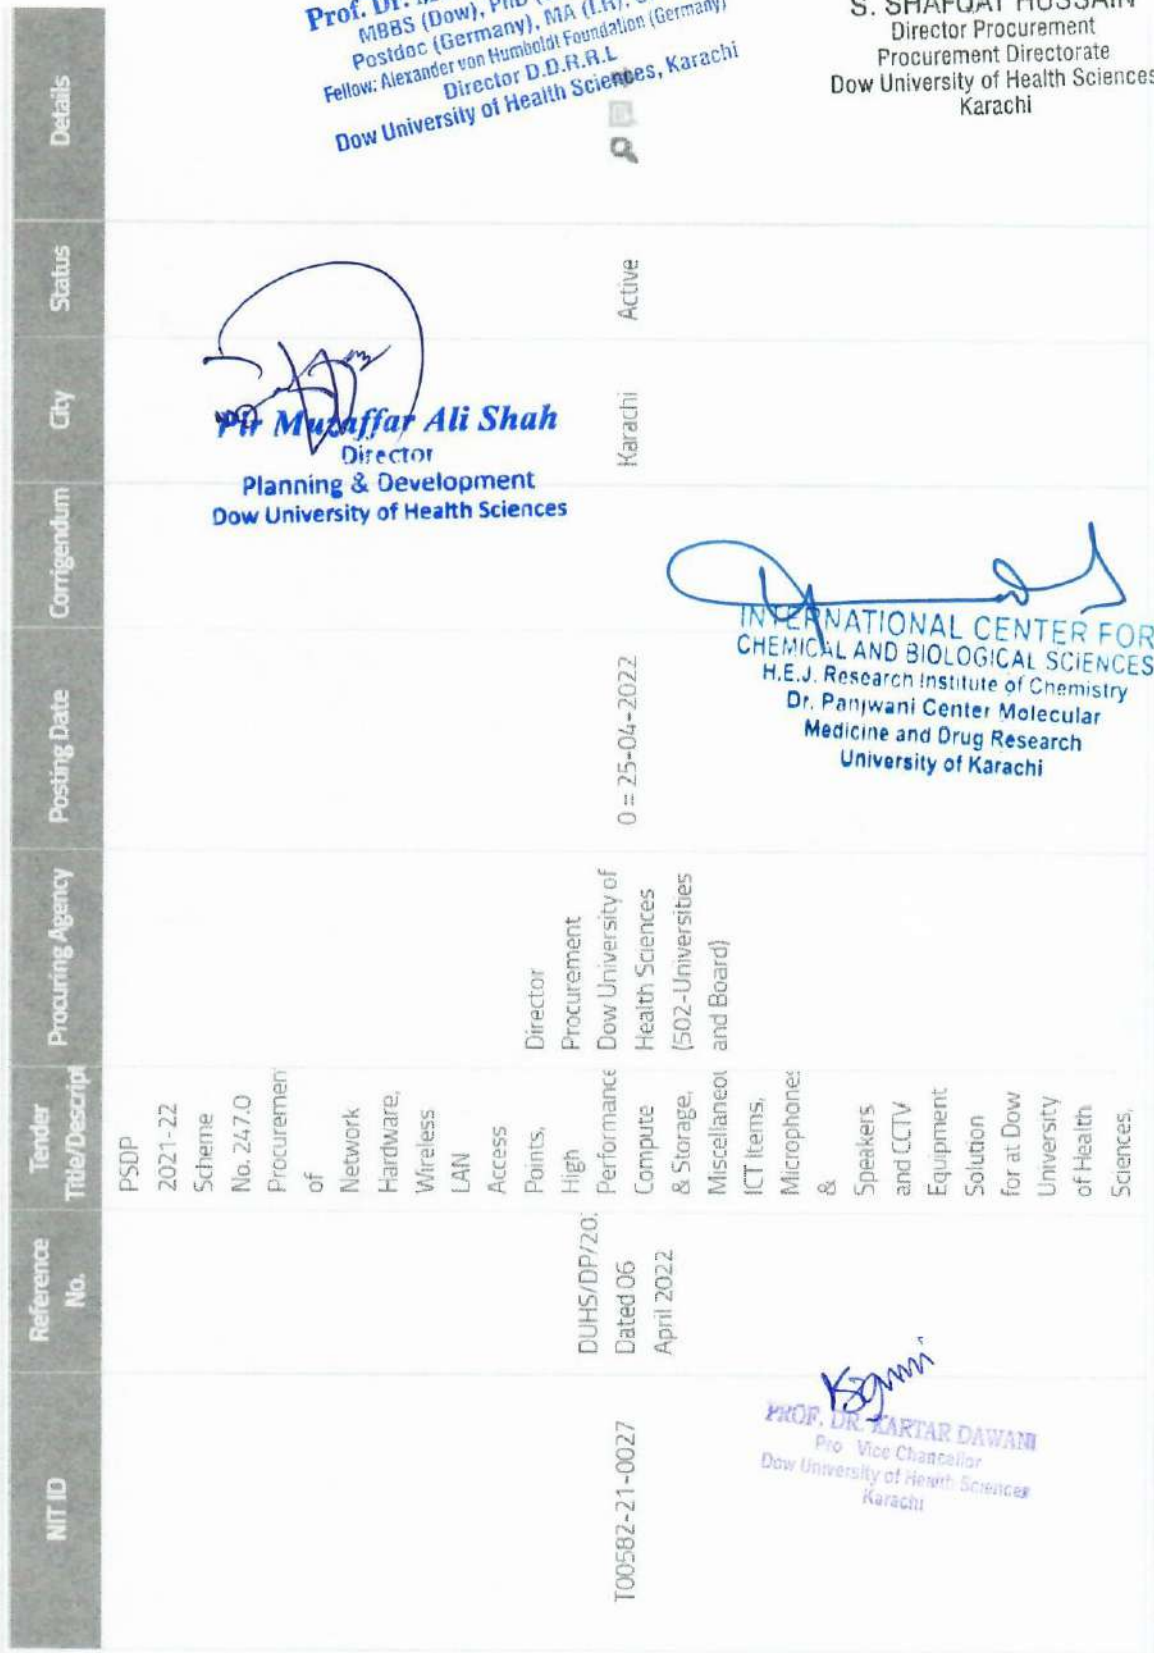 NIT ID
Reference
No.
Tender
Title/Descripl
Procuring Agency
Posting Date
Corrigendum
City
Status
Details
T00582-21-0027
DUHS/DP/20
Dated 06
April 2022
PSDP
2021-22
Scheme
No. 247.0
Procuremen
of
Network
Hardware,
Wireless
LAN
Access
Points,
High
Performance
Compute
& Storage,
Miscellaneou
ICT Items,
Microphones
&
Speakers
and CCTV
Equipment
Solution
for at Dow
University
of Health
Sciences,
Director
Procurement
Dow University of
Health Sciences
(502-Universities
and Board)
0 = 25-04-2022
Karachi
Active
Prof. Dr.
MBBS (Dow), PhD
Postdoc (Germany), MA (I.R),
Fellow: Alexander von Humboldt Foundation (Germany)
Director D.D.R.R.L
Dow University of Health Sciences, Karachi
S. SHAFQAT HUSSAIN
Director Procurement
Procurement Directorate
Dow University of Health Sciences
Karachi
Pir Muzaffar Ali Shah
Director
Planning & Development
Dow University of Health Sciences
INTERNATIONAL CENTER FOR
CHEMICAL AND BIOLOGICAL SCIENCES
H.E.J. Research Institute of Chemistry
Dr. Panjwani Center Molecular
Medicine and Drug Research
University of Karachi
PROF. DR. KARTAR DAWANI
Pro Vice Chancellor
Dow University of Health Sciences
Karachi